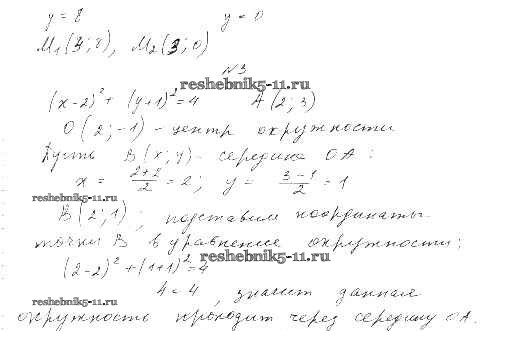 y = 8 y = 0
M₁(3; 8), M₂(3; 0)
№3
reshebnik5-11.ru
(x-2)² + (y+1)² = 4 A(2; 3)
O(2; -1) - центр окружности
Пусть B(x; y) - середина OA:
x = (2+2)/2 = 2; y = (3-1)/2 = 1
reshebnik5-11.ru
B(2; 1); подставим координаты
точки B в уравнение окружности;
reshebnik5-11.ru
(2-2)² + (1+1)² = 4
reshebnik5-11.ru
4 = 4, значит данная
окружность проходит через середину OA.